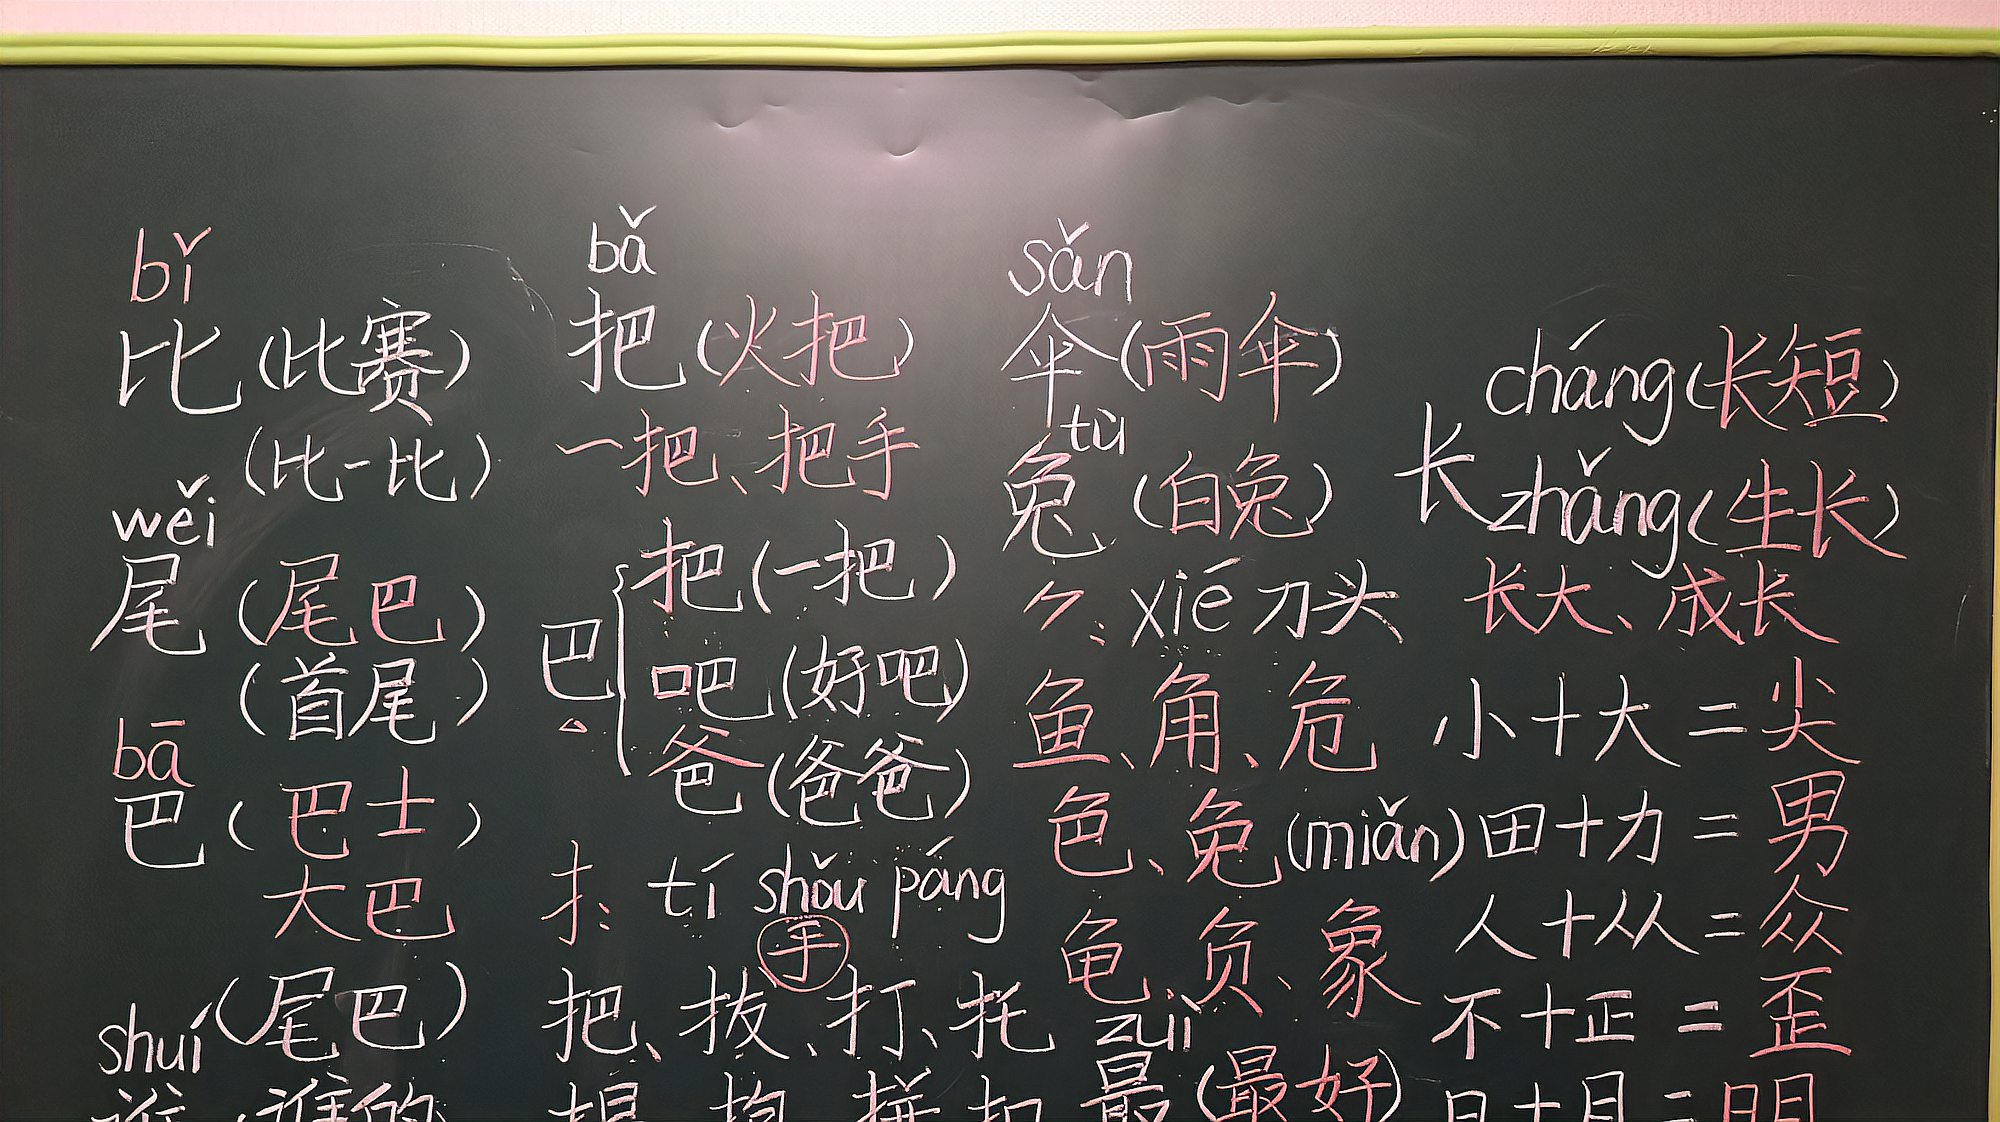 bǐ
比(比赛)
(比一比)
wěi
尾(尾巴)
(首尾)
bā
巴(巴士)
大巴
(尾巴)
shuí
谁(谁的
bǎ
把(火把)
一把、把手
巴
把(一把)
吧(好吧)
爸(爸爸)
扌: tí shǒu páng
手
把、拔、打、托
提、抱、拼、扣
sǎn
伞(雨伞)
tù
兔(白兔)
⺈: xié 刀头
鱼、角、危
色、免(miǎn)
龟、负、象
zuì
最(最好)
长
cháng(长短)
zhǎng(生长)
长大、成长
小+大=尖
田+力=男
人+从=众
不+正=歪
日+月=明